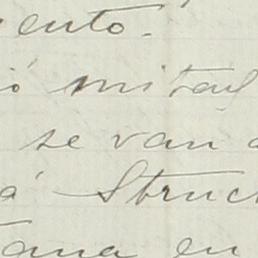 ento.
ó mitad
se van a
á Struc
tana en